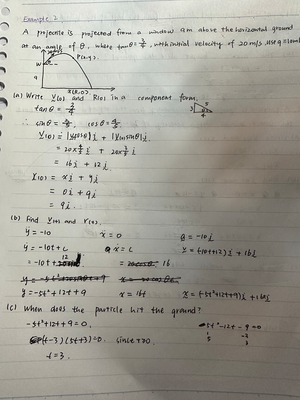 Example 2
A projectile is projected from a window 9m above the horizontal ground
at an angle of θ, where tanθ = 3/4, with initial velocity of 20 m/s. Use g=10m/s
P(x,y)
W
9
X(R,0)
(a) Write V(0) and R(0) in a component form.
tanθ = 3/4
3 5 4
∴ sinθ = 3/5, cosθ = 4/5
V(0) = |V|cosθ i + |V|sinθ j
= 20×4/5 i + 20×3/5 j
= 16i + 12j
r(0) = xi + yj
= 0i + 9j
= 9j
(b) Find V(t) and r(t).
ÿ = -10 ẍ = 0 a = -10j
ẏ = -10t + c ẋ = c V = (-10t+12)j + 16i
= -10t + 12 = 16
y = -5t²+12t+9 x = 16t r = (-5t²+12t+9)j + 16ti
(c) When does the particle hit the ground?
-5t²+12t+9=0, 5t²-12t-9=0
(t-3)(5t+3)=0 since t>0
t=3